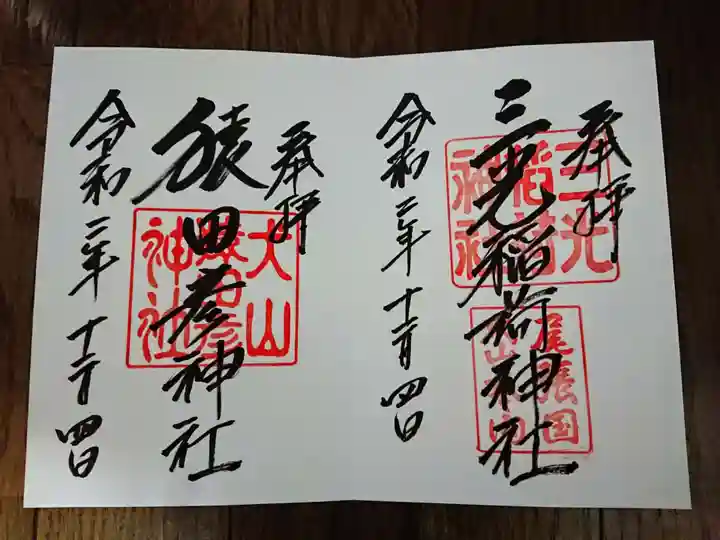 奉拝
三光稲荷神社
三光
稲荷
神社
尾張国
令和二年十二月四日
奉拝
猿田彦神社
犬山
猿田彦
神社
令和二年十二月四日